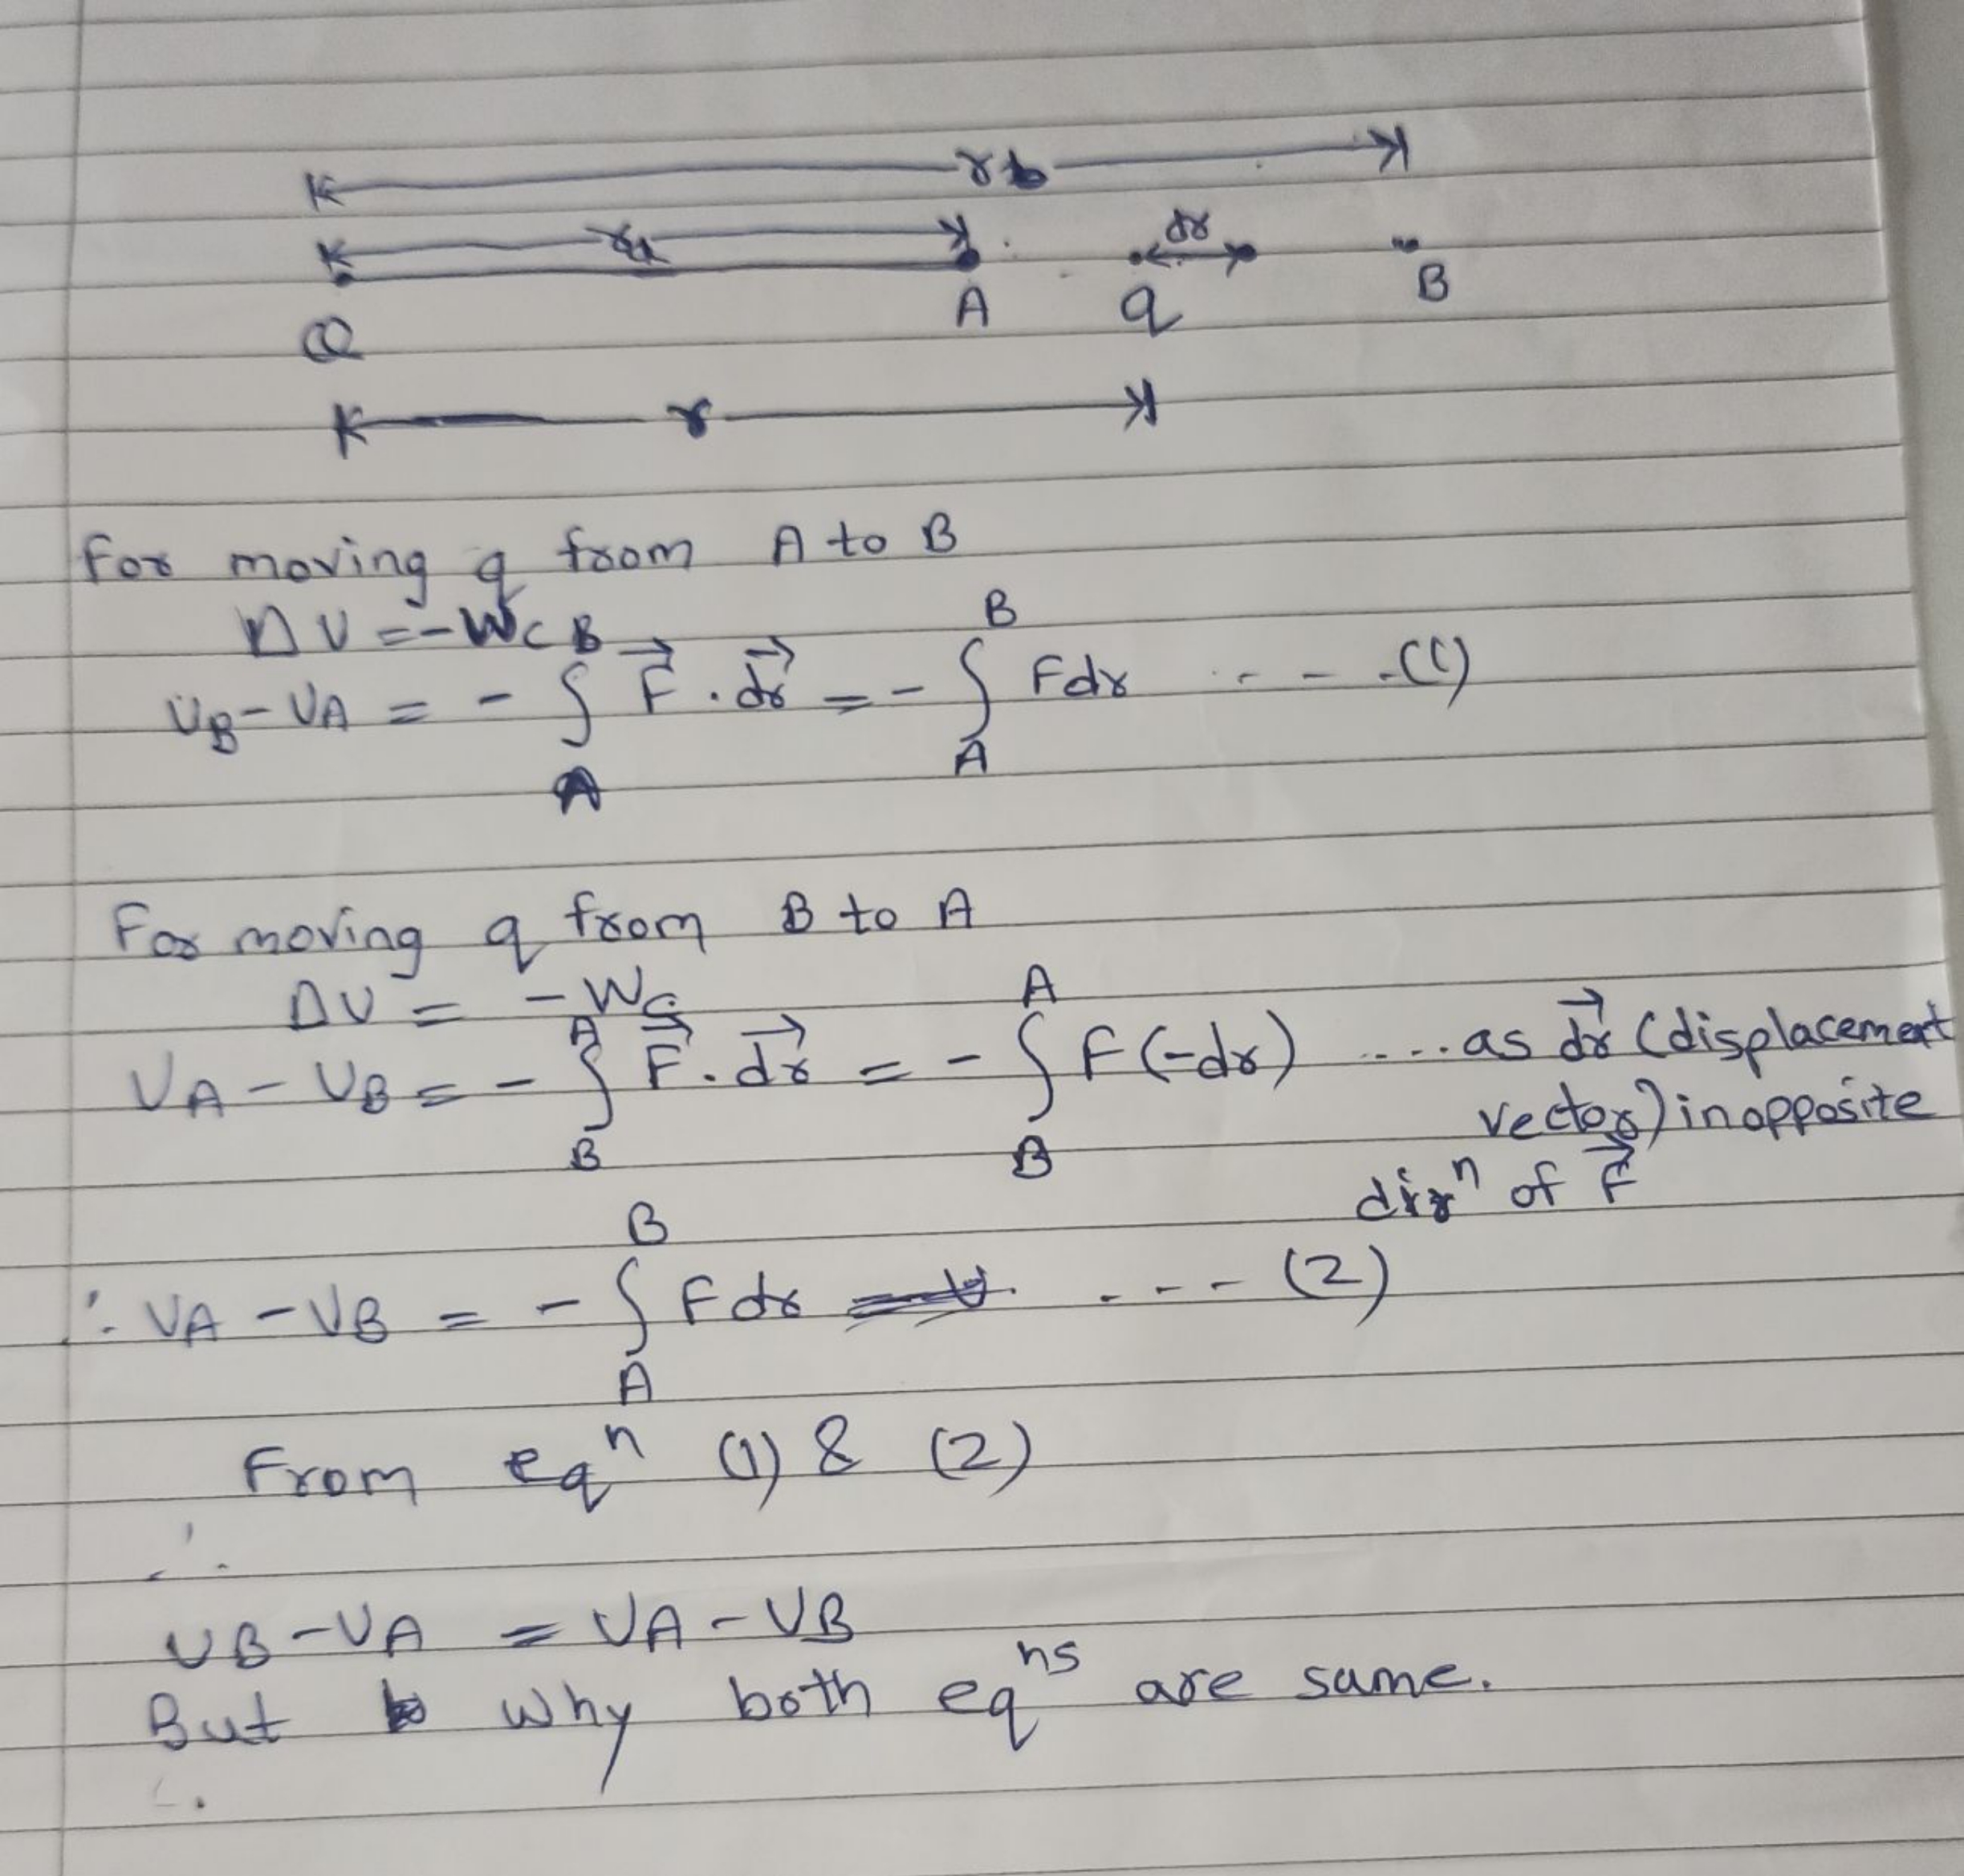 rb
r1 dr
A q B
Q
r
For moving q from A to B
ΔU = -Wc
UB - UA = - ∫_A^B F⃗ . dr⃗ = - ∫_A^B Fdr ... - .(1)
For moving q from B to A
ΔU = - Wc
UA - UB = - ∫_B^A F⃗ . dr⃗ = - ∫_B^A F(-dr) .... as dr⃗ (displacement
vector) in opposite
dirⁿ of F⃗
∴ UA - UB = - ∫_A^B Fdr . - - - (2)
From eqⁿ (1) & (2)
∴
UB - UA = UA - UB
But why both eqⁿˢ are same.